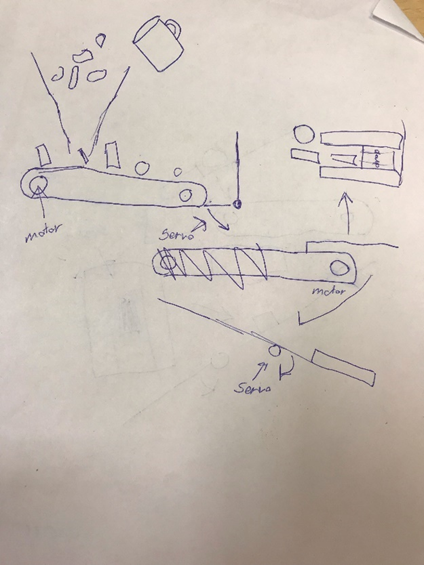 motor
Servo
motor
Servo